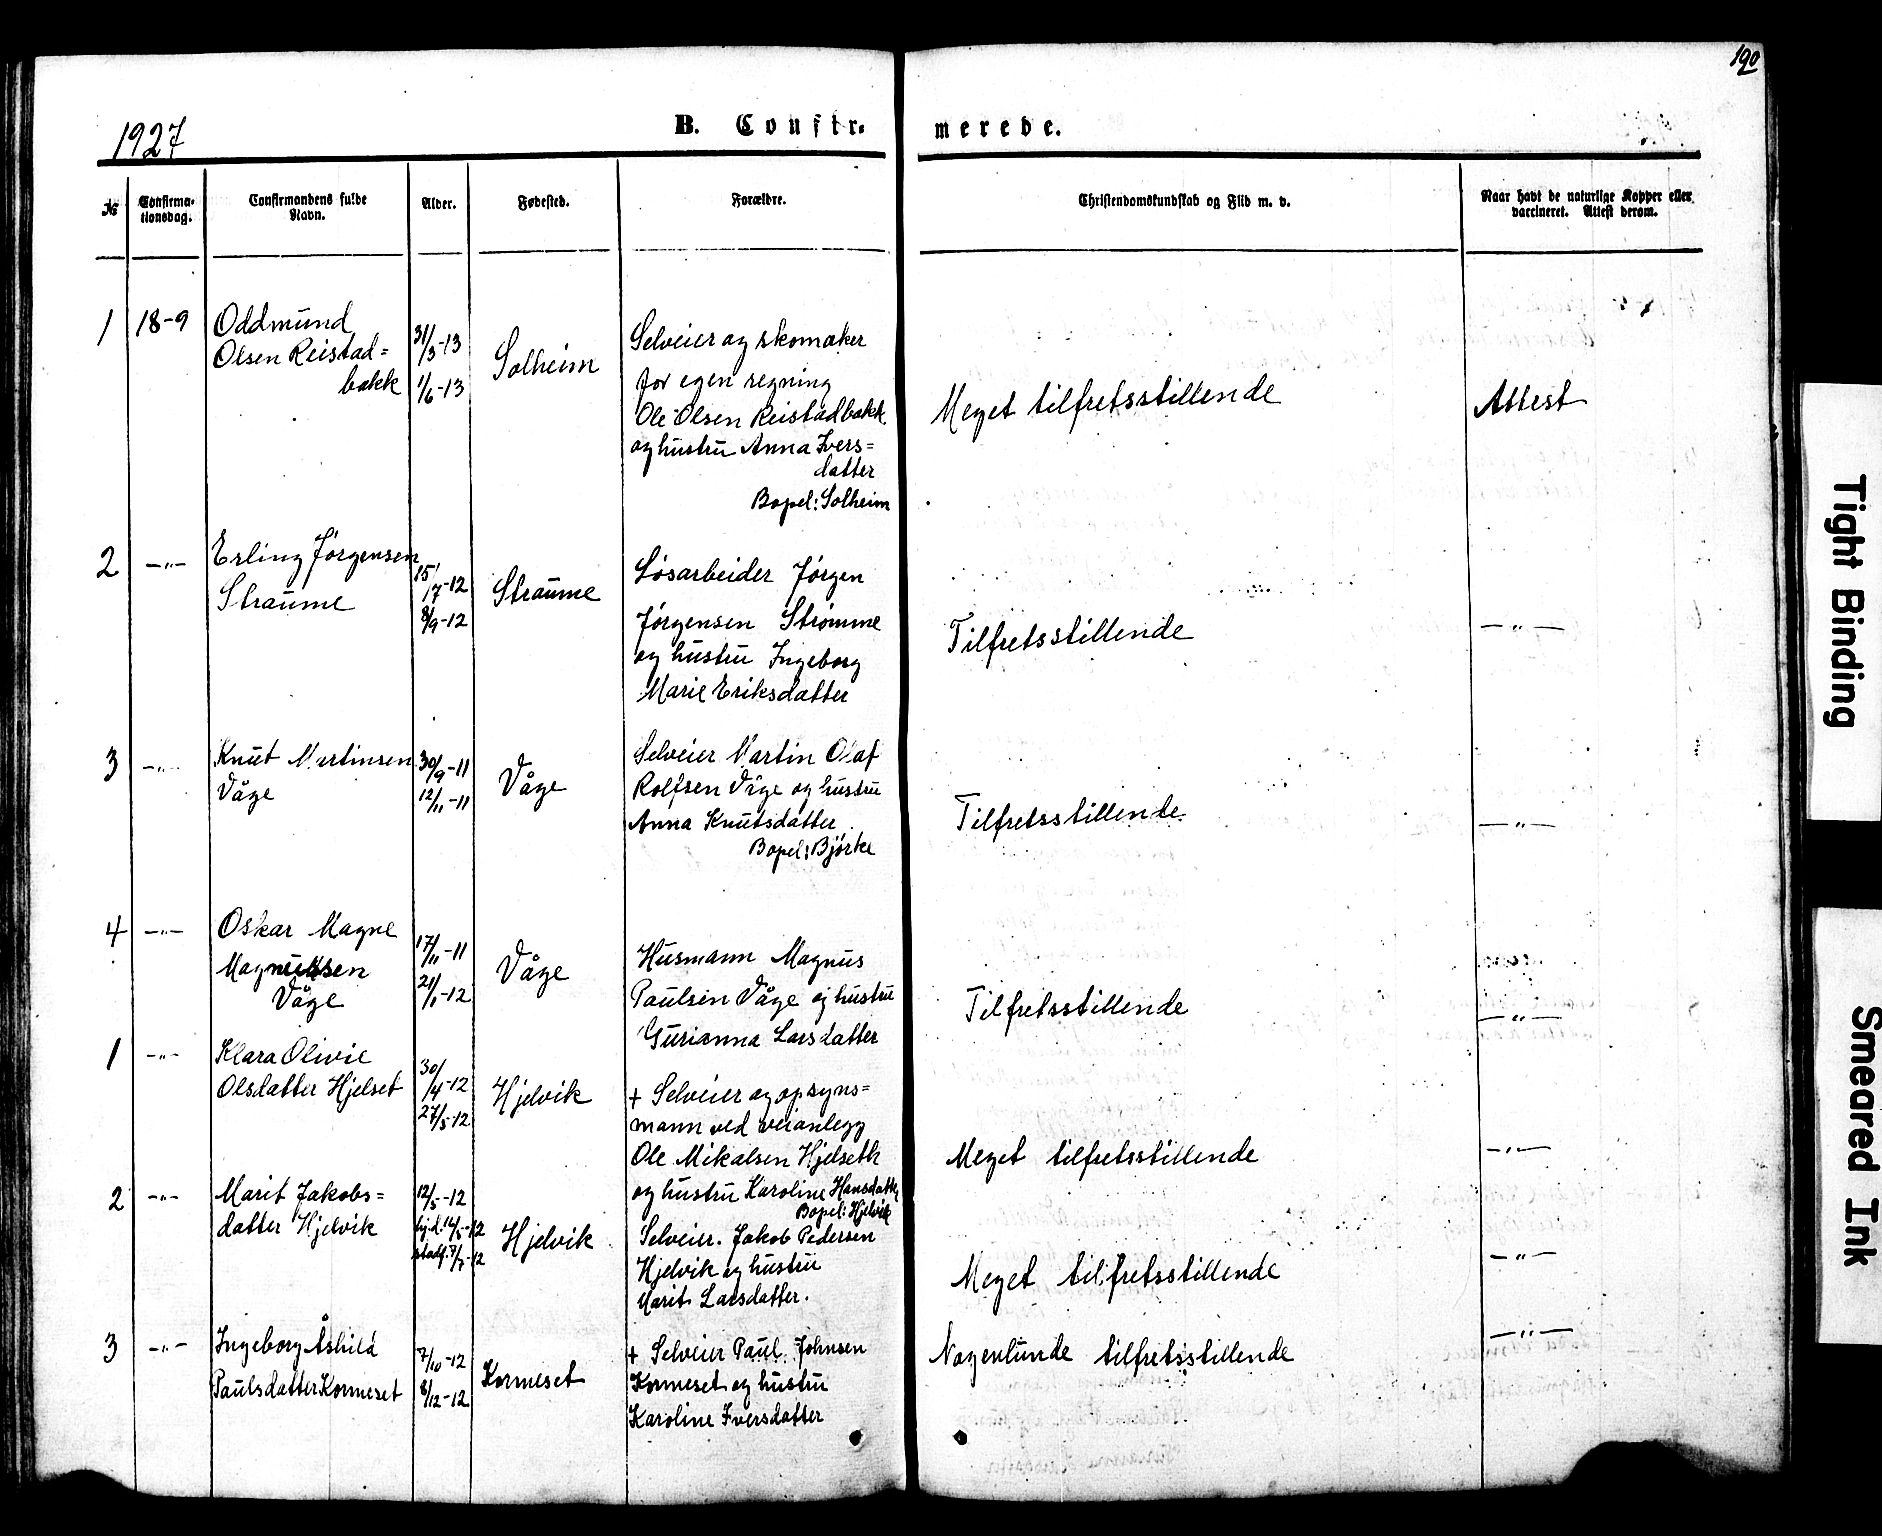 190
1927
B. Confir- merede.
№
Confirma-
tionsdag.
Confirmandens fulde
Navn.
Alder.
Fødested.
Forældre.
Christendomskundskab og Flid m. v.
Naar havt de naturlige Kopper eller
vaccineret. Attest derom.
1
18-9
Oddmund
Olsen Reistad=
bakk
31/3-13
1/6-13
Solheim
Selveier og skomaker
for egen regning
Ole Olsen Reistadbakk
og hustru Anna Ivers=
datter
Bopel: Solheim
Meget tilfretsstillende
Attest
2
-"-
Erling Jørgensen
Straume
15/7-12
8/9-12
Straume
Løsarbeider Jørgen
Jørgensen Strømme
og hustru Ingeborg
Marie Eriksdatter
Tilfretsstillende
-"-
3
-"-
Knut Martinsen
Våge
30/9-11
12/11-11
Våge
Selveier Martin Olaf
Rolfsen Våge og hustru
Anna Knutsdatter
Bopel: Bjørke
Tilfretsstillende
-"-
4
-"-
Oskar Magne
Magnussen
Våge
17/11-11
21/1-12
Våge
Husmann Magnus
Paulsen Våge og hustru
Gurianna Larsdatter
Tilfretsstillende
-"-
1
-"-
Klara Olivie
Olsdatter Hjelset
30/4-12
27/5-12
Hjelvik
+ Selveier og opsyns=
mann ved veianlegg
Ole Mikalsen Hjelseth
og hustru Karoline Hansdatter
Bopel: Hjelvik
Meget tilfretsstillende
-"-
2
-"-
Marit Jakobs=
datter Hjelvik
12/5-12
hj.d. 14/5-12
stadf. 7/7-12
Hjelvik
Selveier Jakob Pedersen
Hjelvik og hustru
Marit Larsdatter.
Meget tilfretsstillende
-"-
3
-"-
Ingeborg Åshild
Paulsdatter Kormeset
7/10-12
8/12-12
Kormeset
+ Selveier Paul Johnsen
Kormeset og hustru
Karoline Iversdatter
Nogenlunde tilfretsstillende
-"-
Tight Binding
Smeared Ink